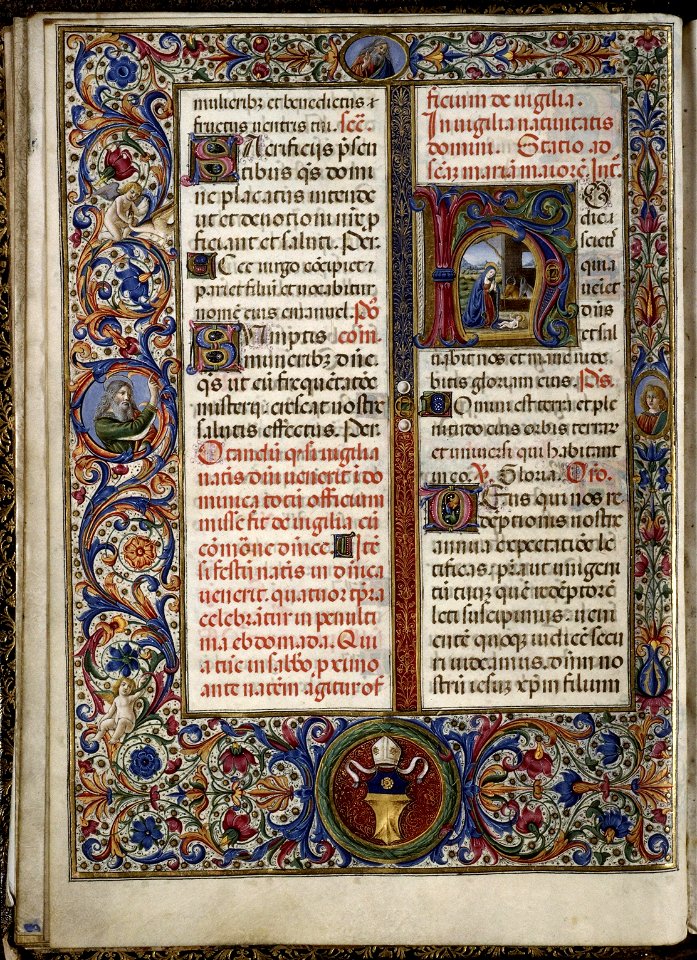 mulieribz et benedictus &
fructus uentris tui. Secr.
Sacrificiis p̄sen
tibus qs̄ domi
ne placatus intende
ut et deuotioni nr̄e p
ficiant et saluti. Per.
Ecce uirgo cōcipiet &
pariet filiū et uocabitur
nomē eius emanuel. Pō
Sumptis com.
muneribz dn̄e
qs̄ ut cū frequētatōe
misterij crescat nostre
salutis effectus. Per.
Notandū q si uigilia
natis dn̄i uenerit ī do
munica totū officium
misse fit de uigilia cū
cōmōne dnīce. Itē
si festū natis in dnīca
uenerit. quatuor tp̄ra
celebrātur in penulti
ma ebdomada. Qui
a tūc in sabbo, proximo
ante natēm agitur of
ficium de uigilia.
In uigilia natiuitatis
domini. Statio ad
scām mariā maiorē. Int̄.
Ho
die
scietis
quia
ueiet
dn̄s
et sal
uabit nos et mane uide
bitis gloriam eius. Ps.
Domini est terra et ple
nitudo eius orbis terrar
et uniuersi qui habitant
in eo. V. Gloria. Oro.
Deus qui nos re
deptionis nostre
annua expectatiōe le
tificas. pr̄a ut unigeni
tū tuū quē redēptorē
leti suscipimus. ueni
entē quoq iudicē secu
ri uideamus. dnm no
strū iesuz xp̄m filium